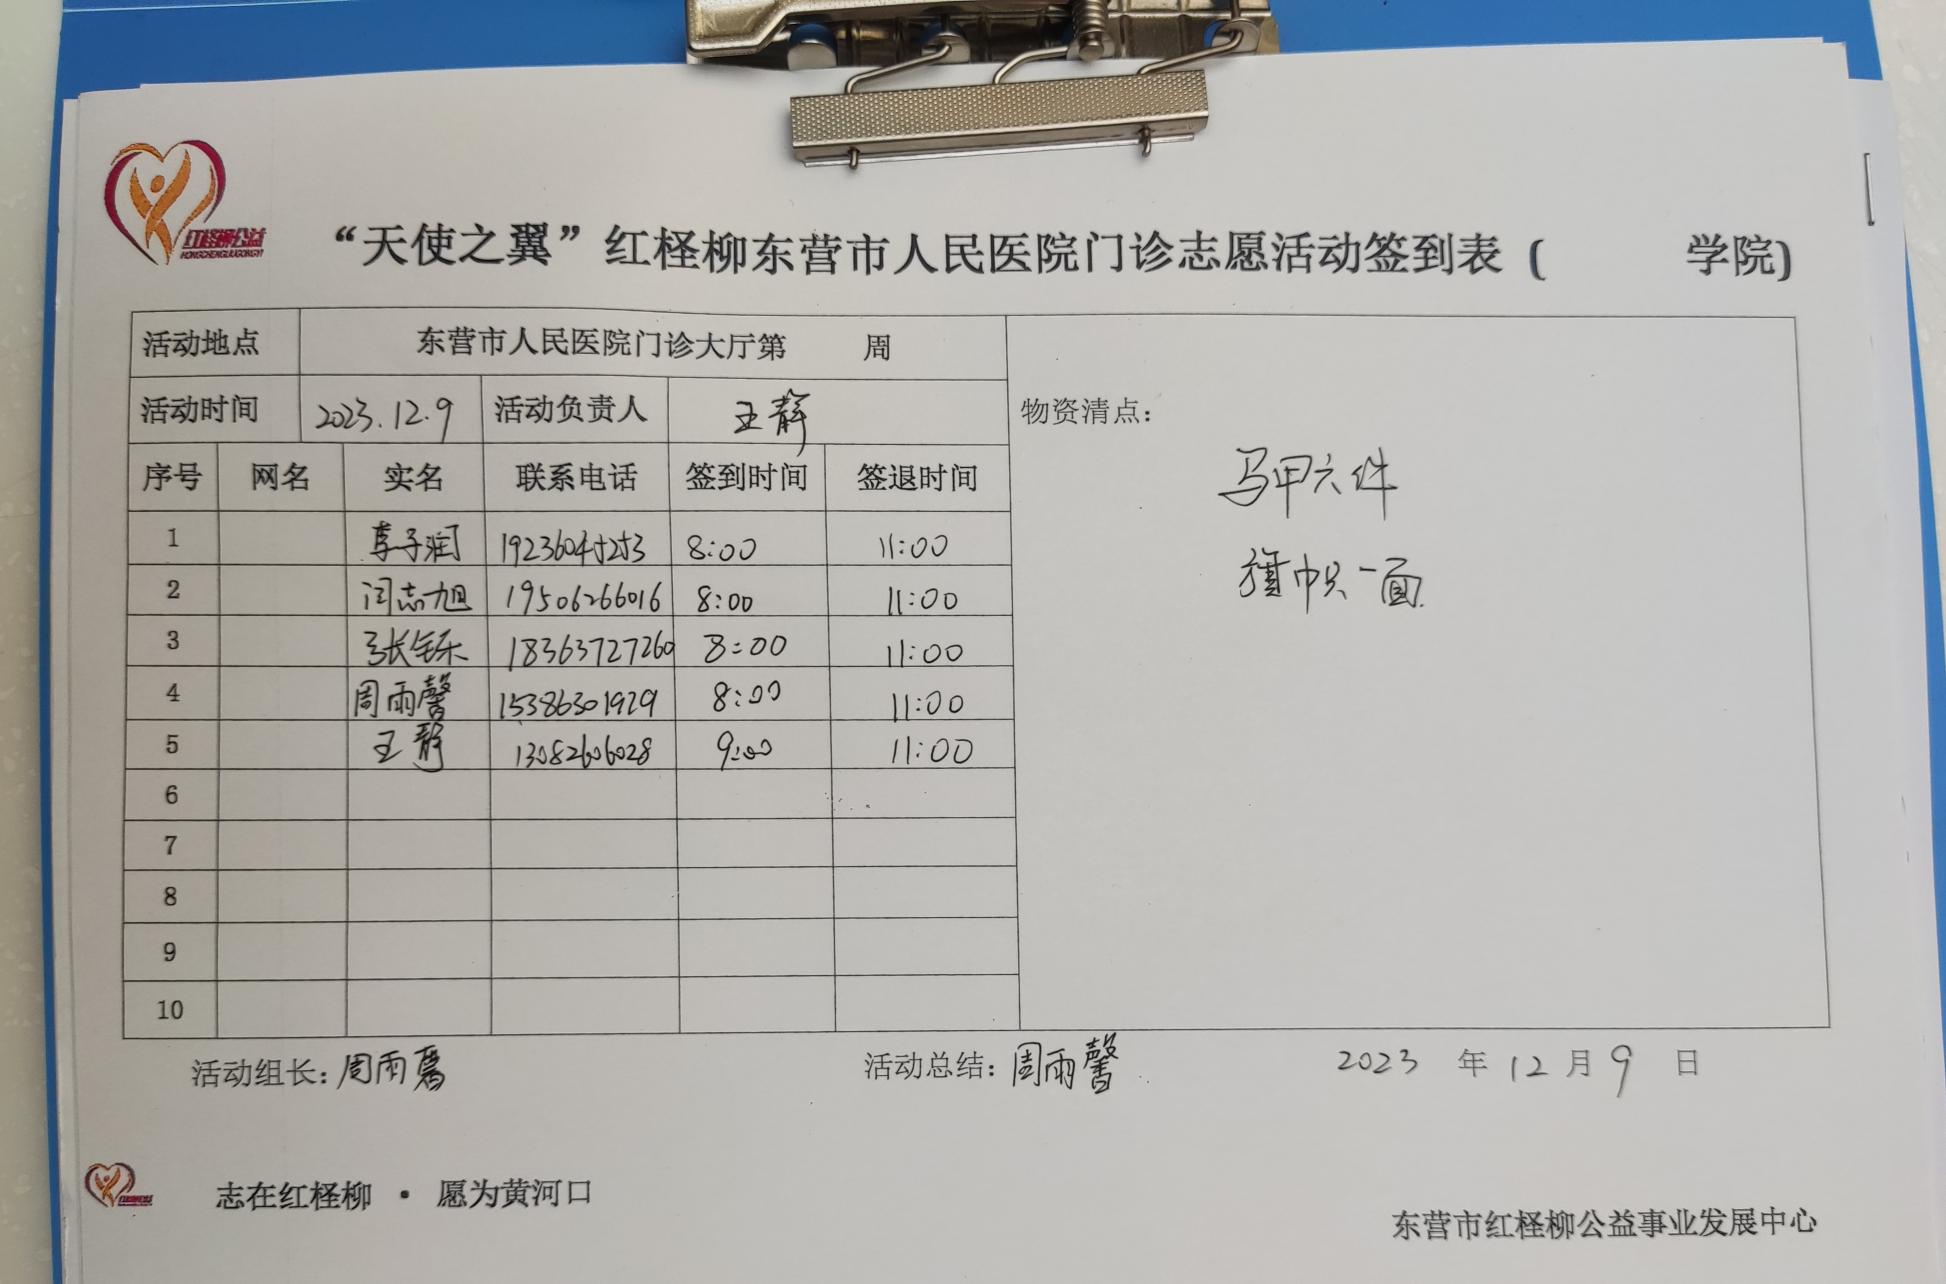 红柽柳公益
HONGCHENGLIUGONGYI
“天使之翼”红柽柳东营市人民医院门诊志愿活动签到表（ 学院)
活动地点 东营市人民医院门诊大厅第 周
活动时间 2023.12.9 活动负责人 王静
物资清点：
马甲六件
旗帜一面
序号 网名 实名 联系电话 签到时间 签退时间
1 李子润 19236045253 8:00 11:00
2 闫志旭 19506266016 8:00 11:00
3 张铄 18363727260 8:00 11:00
4 周雨馨 15386301929 8:00 11:00
5 王静 13082606028 9:00 11:00
6
7
8
9
10
活动组长：周雨馨 活动总结：周雨馨 2023 年 12 月 9 日
志在红柽柳 · 愿为黄河口
东营市红柽柳公益事业发展中心